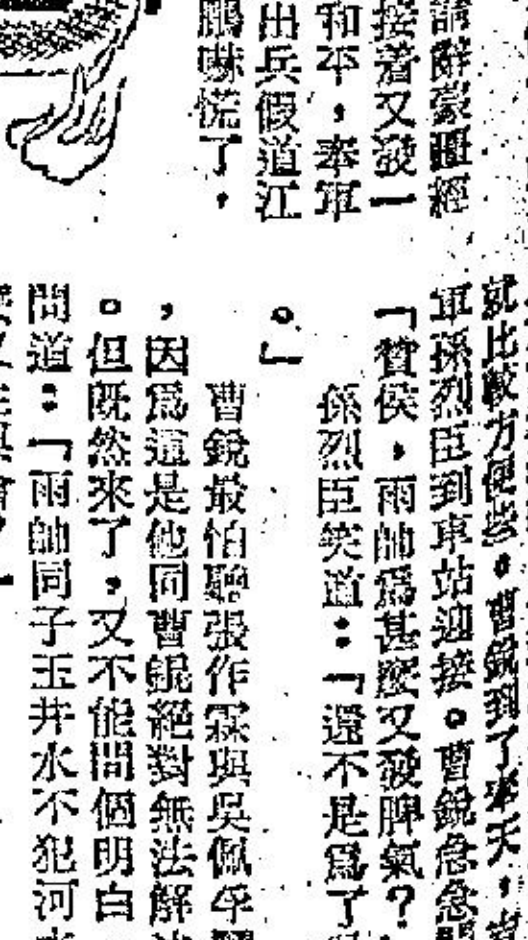 請辭蒙疆經
接着又發一
和平，奉軍
出兵假道江
鵬嚇慌了，
就比較方便些。曹銳到了奉天，
軍孫烈臣到車站迎接。曹銳急急
「贊侯，雨帥爲甚麼又發脾氣？
孫烈臣笑道：「還不是爲了
。」
曹銳最怕聽張作霖與吳佩孚
，因爲這是他同曹錕絕對無法解
。但既然來了，又不能問個明白
問道：「雨帥同子玉井水不犯河